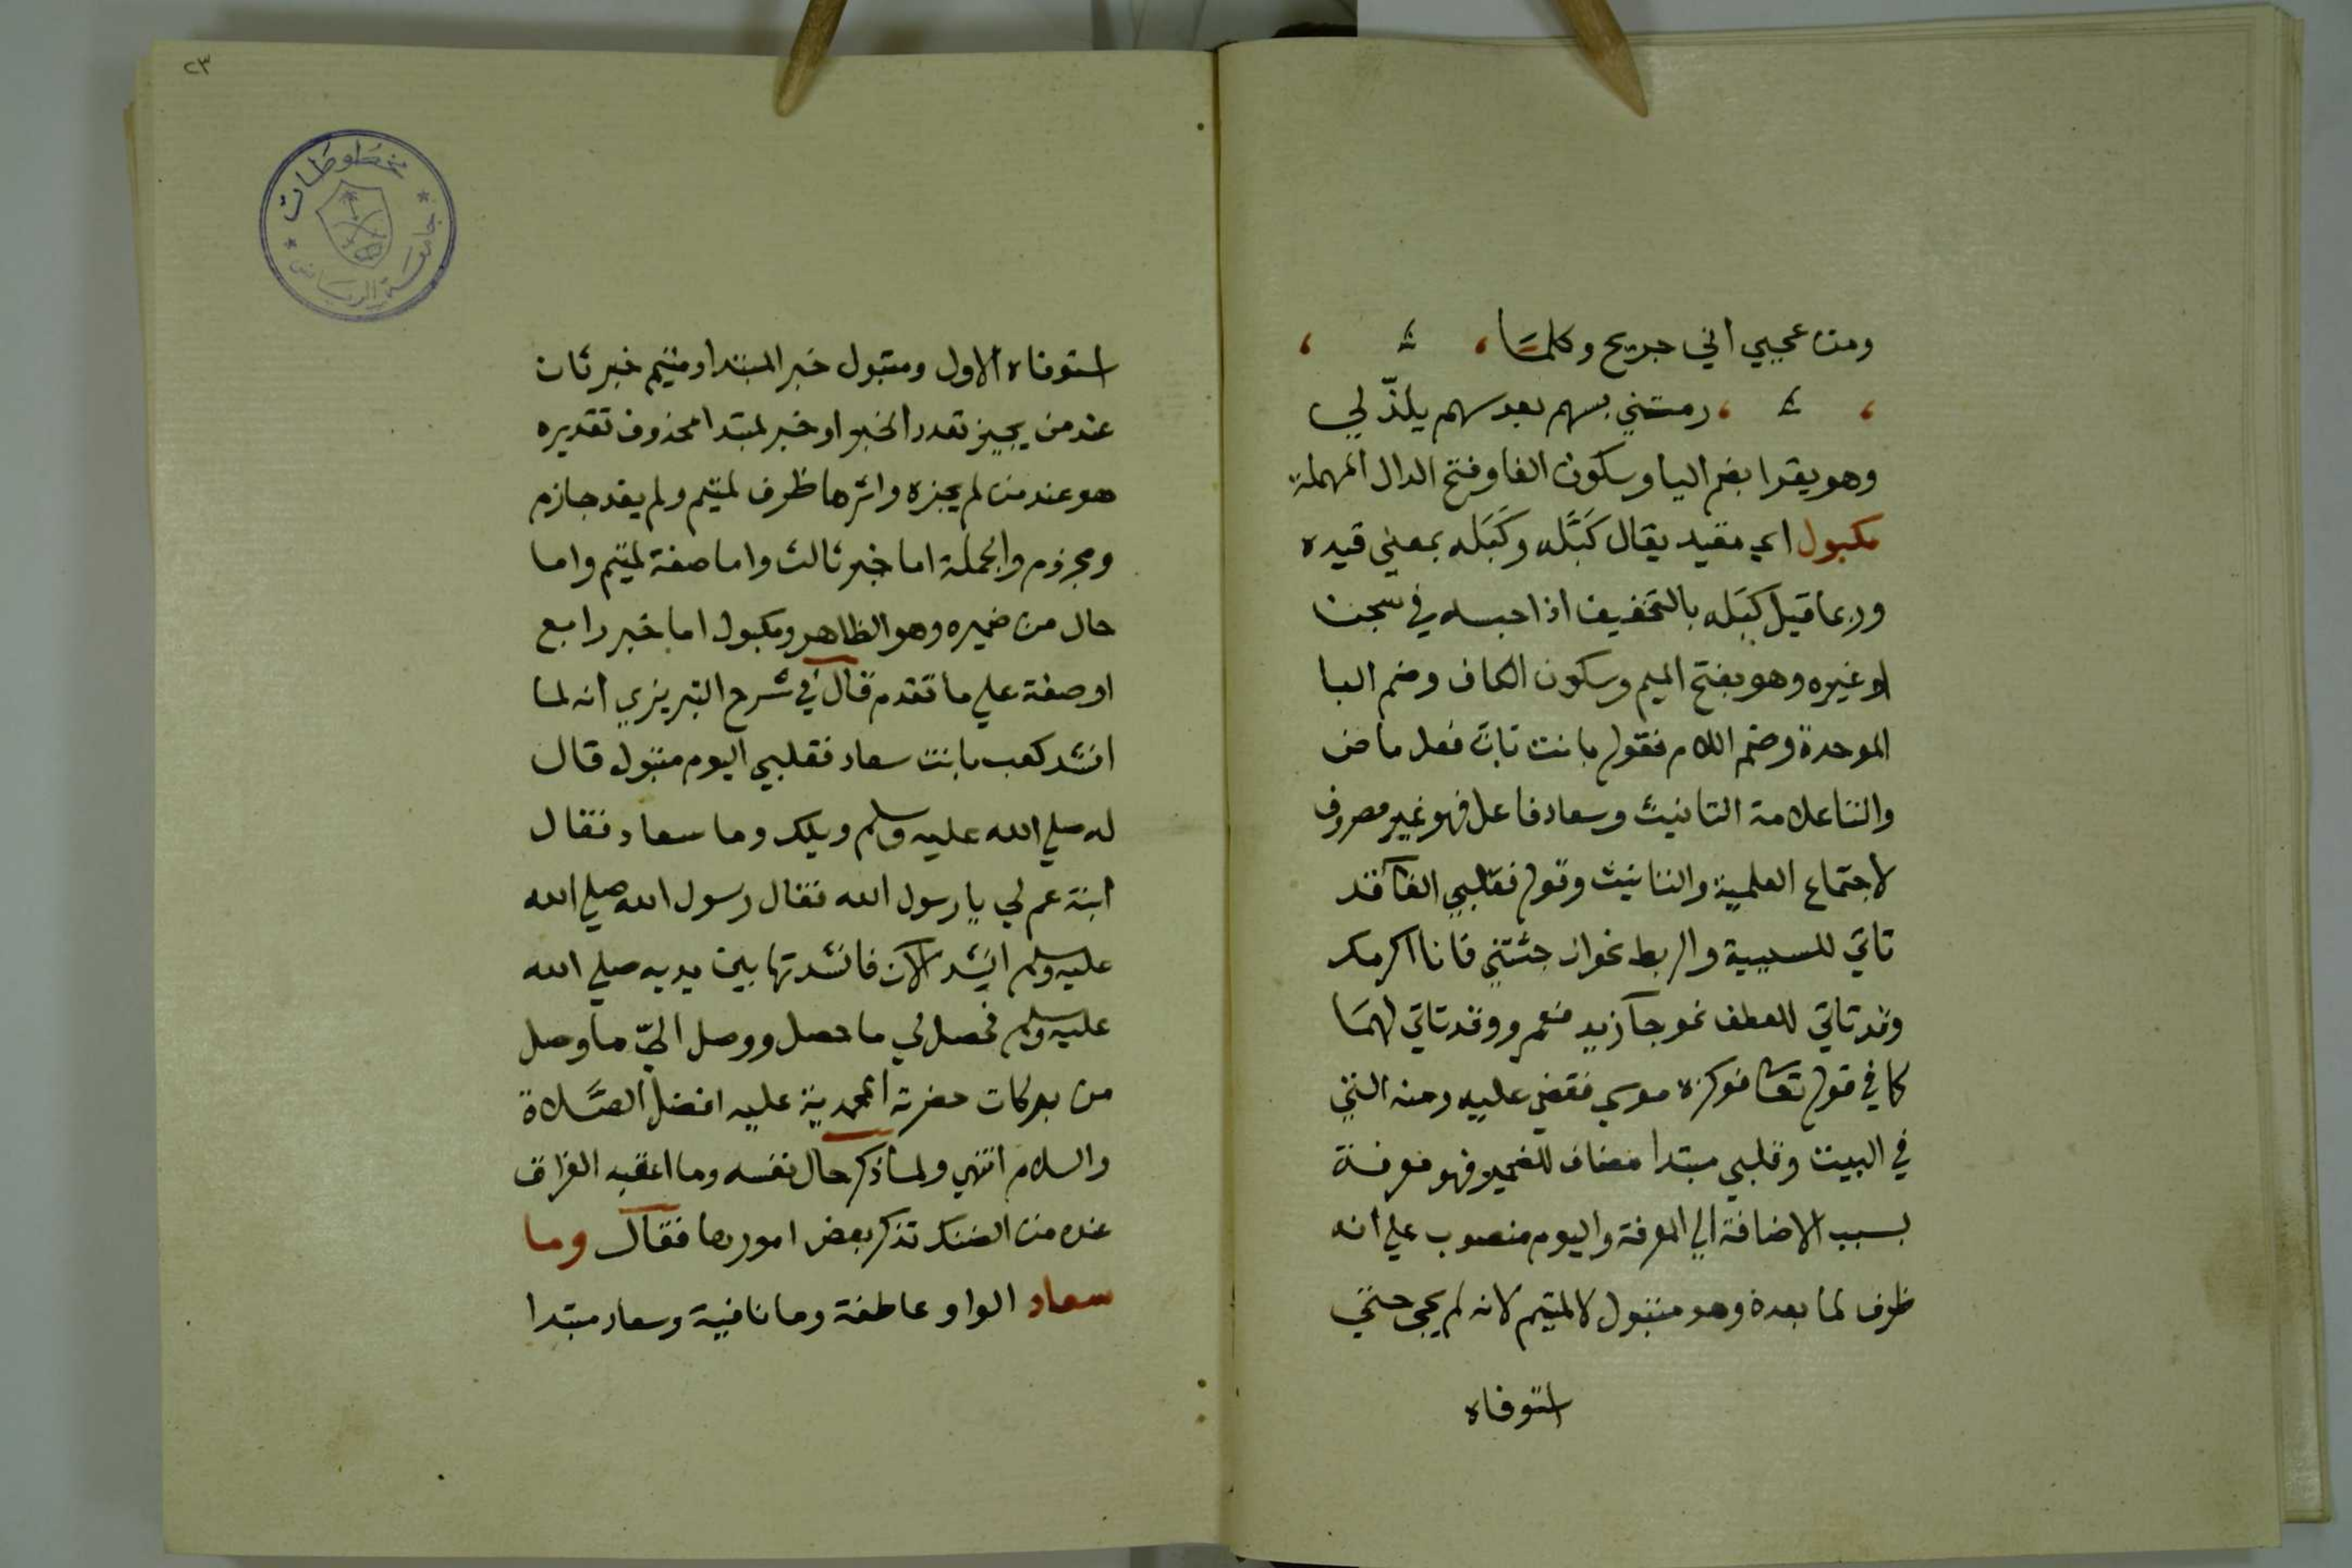 ومن عجبي اني جريح وكلما
رمتني بسهم بعد سهم يلذّ لي
وهو يقرا بضم اليا وسكون الفا وفتح الدال المهملة
مكبول اي مقيد يقال كَبَّله وكَبَله بمعني قيده
وربما قيل كبَله بالتخفيف اذا حبسه في سجن
او غيره وهو بفتح الميم وسكون الكاف وضم البا
الموحدة وضم اللام فقوله بانت بان فعل ماض
والتا علامة التانيث وسعاد فاعل فهو غير مصروف
لاجتماع العلمية والتانيث وقوله فقلبي الفا قد
تاتي للسببية والربط نحو ان جئتني فانا اكرمك
وقد تاتي للعطف نحو جآ زيد فعمرو وقد تاتي لهما
كما في قوله تعا فوكزه موسي فقضي عليه ومنه التي
في البيت وقلبي مبتدا مضاف للضمير فهو معرفة
بسبب الاضافة الي المعرفة واليوم منصوب علي انه
ظرف لما بعده وهو متبول لا لمتيم لانه لم يجي حتي
استوفاه
٢٣
مخطوطات
جامعة الرياض
استوفاه الاول ومتبول خبر المبتدا ومتيم خبر ثان
عند من يجيز تعدد الخبر او خبر لمبتدا محذوف تقديره
هو عند من لم يجزه واثرها ظرف لمتيم ولم يفد جازم
ومجزوم والجملة اما خبر ثالث واما صفة لمتيم واما
حال من ضميره وهو الظاهر ومكبول اما خبر رابع
او صفة علي ما تقدم قال في شرح التبريزي انه لما
انشد كعب بانت سعاد فقلبي اليوم متبول قال
له صلي الله عليه وسلم ويلك وما سعاد فقال
ابنة عم لي يا رسول الله فقال رسول الله صلي الله
عليه وسلم انشد الآن فانشدتها بين يديه صلي الله
عليه وسلم فحصل لي ما حصل ووصل اليّ ما وصل
من بركات حضرته المحمدية عليه افضل الصلاة
والسلام انتهي ولما ذكر حال نفسه وما اعقبه الفراق
عنده من الضنك تذكر بعض امورها فقال وما
سعاد الواو عاطفة وما نافية وسعاد مبتدا